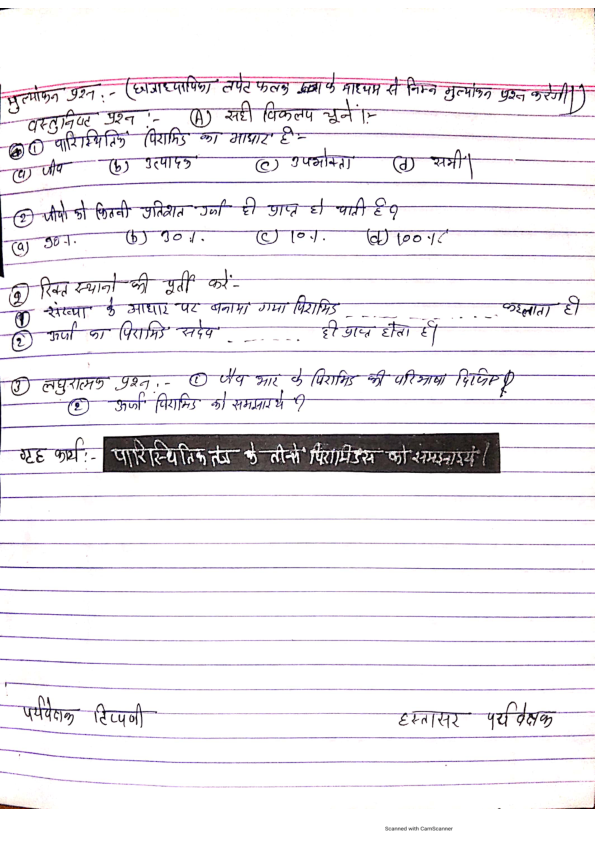 मुल्यांकन प्रश्न :- (छात्राध्यापिका लपेट फलक के माध्यम से निम्न मुल्यांकन प्रश्न करेगी।)
वस्तुनिष्ट प्रश्न :- (A) सही विकल्प चूनें।-
① पारिस्थितिक पिरामिड का आधार है :-
(a) जीव (b) उत्पादक (c) उपभोक्ता (d) सभी।
② जीवो को कितनी प्रतिशत उर्जा ही प्राप्त हो पाती है ?
(a) 90%. (b) 30%. (c) 10%. (d) 100%.
② रिक्त स्थानो की पूर्ती करें:-
① संख्या के आधार पर बनाया गया पिरामिड _ _ _ _ _ _ _ _ _ कहलाता है।
② ऊर्जा का पिरामिड सदैव _ _ _ _ _ _ ही प्राप्त होता है।
③ लघुरात्मक प्रश्न :- ① जैव भार के पिरामिड की परिभाषा दिजिए ?
② ऊर्जा पिरामिड को समझाइये ?
गृह कार्य :- पारिस्थितिक तंत्र के तीनो पिरामिडस को समझाइयें।
पर्यवेक्षक टिप्पणी हस्तासर पर्यवेक्षक
Scanned with CamScanner